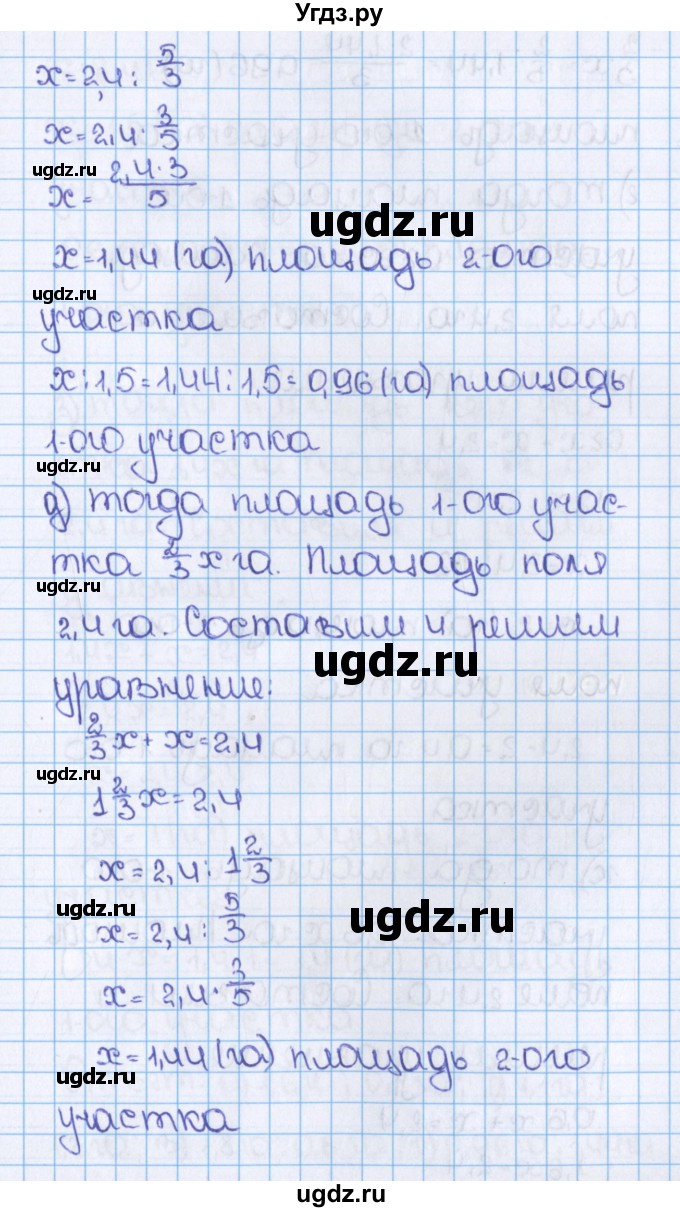 Угдз.ру
x = 2,4 : 5/3
x = 2,4 · 3/5
ugdz.ru
x = 2,4·3/5
ugdz.ru
x = 1,44 (га) площадь 2-ого
ugdz.ru
участка
x : 1,5 = 1,44 : 1,5 = 0,96 (га) площадь
1-ого участка
ugdz.ru
д) тогда площадь 1-ого учас-
тка 2/3 x га. Площадь поля
ugdz.ru
2,4 га. Составим и решим
ugdz.ru
уравнение:
2/3 x + x = 2,4
ugdz.ru
1 2/3 x = 2,4
x = 2,4 : 1 2/3
ugdz.ru
ugdz.ru
x = 2,4 : 5/3
x = 2,4 · 3/5
x = 1,44 (га) площадь 2-ого
ugdz.ru
участка
ugdz.ru